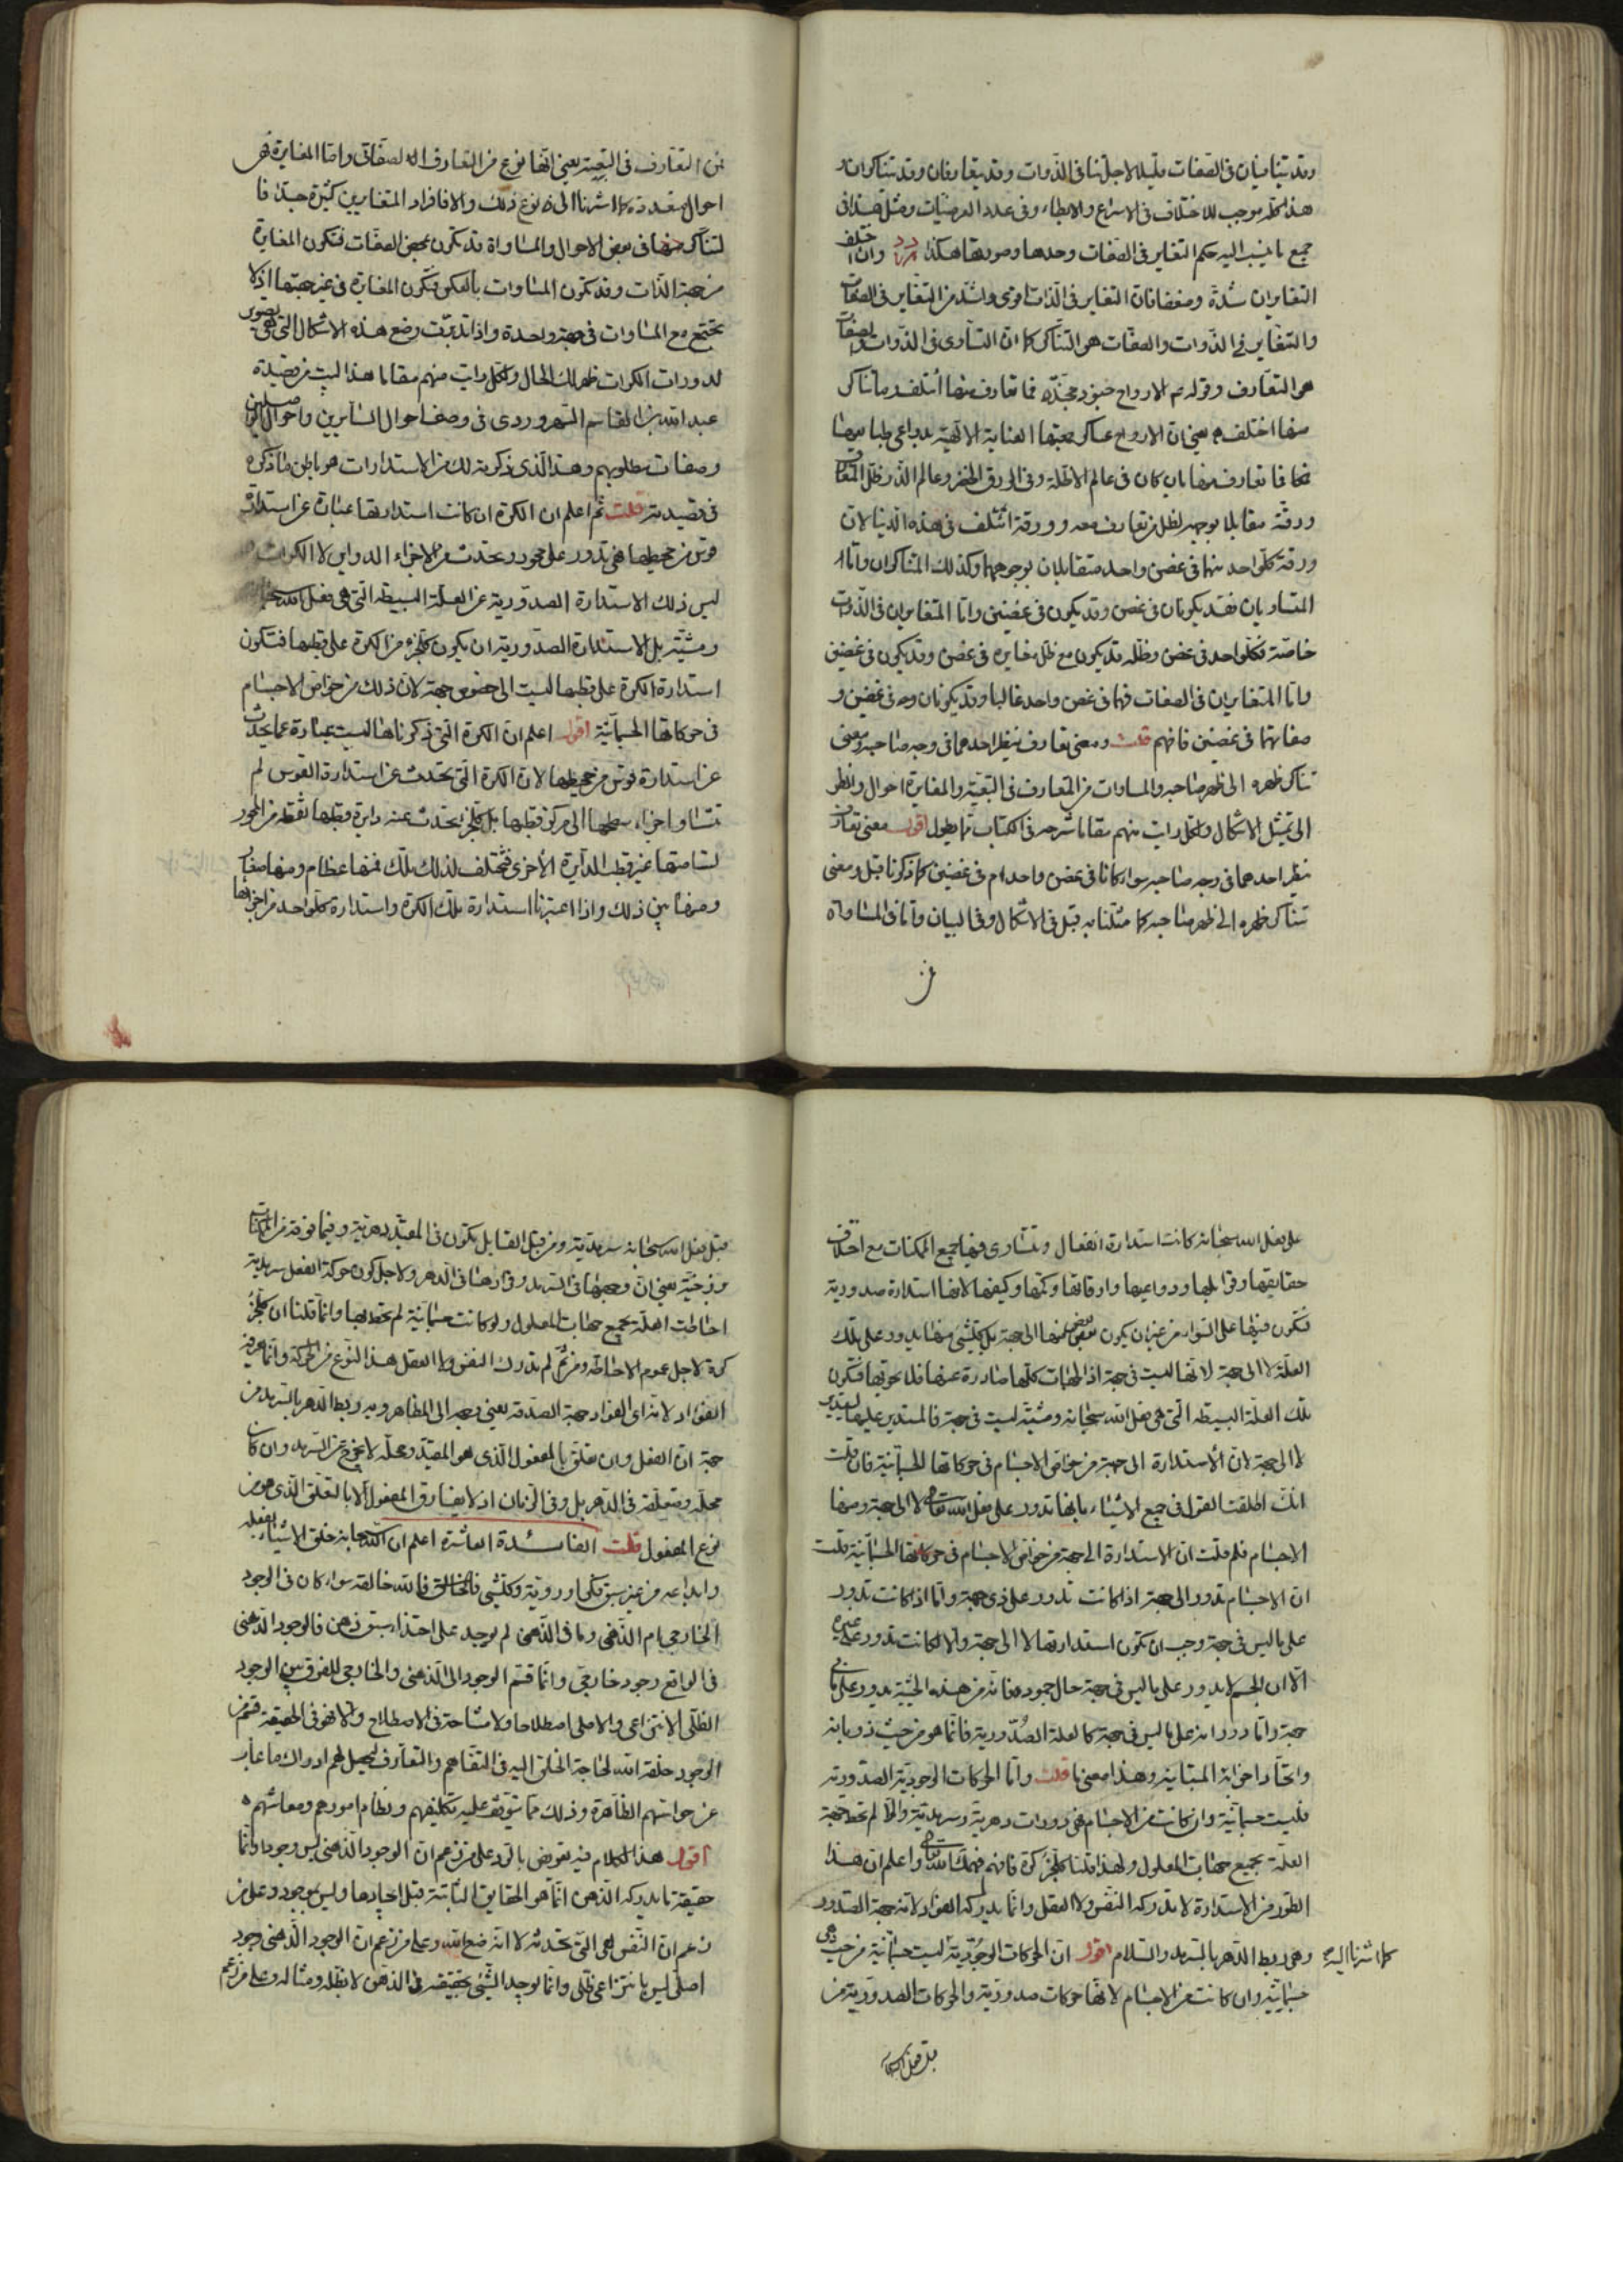 وقد يتنافيان في الصفات قليلا لاجل تنافي الذوات وقد يتعارفان وقد يتناكران و
هذا كله موجب للاختلاف في الاسراع والابطاء وفي عدد العرضيات ومثل هذا في
جميع ما ينسب اليه حكم التغاير في الصفات وحدها وصورتها هكذا وان اختلف
التغايران شدة وضعفا فان التغاير في الذات اقوى واشد من التغاير في الصفات
والتغاير في الذوات والصفات هو التناكر كما ان التساوى في الذوات والصفات
هو التعارف وقوله الارواح جنود مجندة فما تعارف منها ائتلف وما تناكر
منها اختلف يعني ان الارواح عساكر بعثتها العناية الالهية
فما تعارف منها بان كان في عالم الاظلة وفي الورق الاخضر وعالم الذر
ورقته مقابلا بوجهه لظل من تعارف معه وورقته ائتلف في هذه الدنيا لان
ورقة كل واحد منهما في غصن واحد متقابلان بوجوههما وكذلك المتناكران واما
المتساويان فقد يكونان في غصن وقد يكون في غصنين واما المتغايران في الذوات
خاصة فكل واحد في غصن وظله قد يكون مع ظل مغايره في غصن وقد يكون في غصنين
واما المتغايران في الصفات فهما في غصن واحد غالبا وقد يكونان في غصنين و
صفاتهما في غصنين فافهم قلت ومعنى تعارف نظر احدهما في وجه صاحبه ومعنى
تناكر ظهره الى ظهر صاحبه والمساوات من التعارف في التبعية والمغايرة احوال وانظر
الى تمثيل الاشكال ولكل رايت منهم مقاما شرحه في الكتاب مما يطول اقول معنى تعارف
نظر احدهما في وجه صاحبه سواء كانا في غصن واحد ام في غصنين كما ذكرنا قبل ومعنى
تناكر ظهره الى ظهر صاحبه كما مثلنا به قبل في الاشكال وفي البيان واما في المساواة
من التعارف في التبعية يعني انها نوع من التعارف الصفاتي واما المغايرة فهى
احوال متعددة كما اشرنا الى نوع ذلك والا فافراد المتغايرين كثيرة جدا فا
لتناكر منها في بعض الاحوال والمساواة قد تكون ببعض الصفات فتكون المغايرة
من جهة الذات وقد تكون المساوات بالعكس فتكون المغايرة في غير جهتها اذ لا
تجتمع مع المساوات في جهة واحدة واذا تدبرت وضع هذه الاشكال التي هى تصوير
لدورات الكرات ظهر لك الحال ولكل رايت منهم مقاما هذا البيت من قصيدة
عبد الله بن القاسم السهروردى في وصف احوال السائرين واحوال الواصلين
وصفات مطلوبهم وهذا الذى ذكرته لك من الاستدارات هو باطن ما ذكره
في قصيدته قلت ثم اعلم ان الكرة ان كانت استدارتها عبارة عن استدارة
قوس من محيطها فهى تدور على محور وتحدث من الاجزاء الدواير لا الكرات
ليس ذلك الاستدارة الصدورية عن العلة البسيطة التي هى فعل الله سبحانه
ومشيته بل الاستدارة الصدورية ان يكون كل جزء من الكرة على قطبها فتكون
استدارة الكرة على قطبها ليست الى خصوص جهة لان ذلك من خواص الاجسام
في حركاتها الجسمانية اقول اعلم ان الكرة التي ذكرناها ليست عبارة عما يحدث
عن استدارة قوس من محيطها لان الكرة التي تحدث عن استدارة القوس لم
تتساو اجزاء سطحها الى مركز قطبها بل كل جزء تحدث عنه دايرة قطبها نقطة من المحور
لسامتها غير قطب الدائرة الاخرى فتختلف لذلك تلك فمنها عظام ومنها صغار
ومنها بين ذلك واذا اعتبرنا استدارة تلك الكرة واستدارة كل واحد من اجزائها
على فعل الله سبحانه كانت استدارة انفعال وتتساوى فيها جميع الممكنات مع اختلاف
حقايقها وقوابلها ودواعيها واوقاتها وكمها وكيفها لانها استدارة صدورية
فتكون فيها على السواء من غير ان يكون بعض منها الى جهة بل كل شئ منها يدور على تلك
العلة لا الى جهة لانها ليست في جهة اذ الجهات كلها صادرة عنها فلا تحويها فتكون
تلك العلة البسيطة التي هى فعل الله سبحانه ومشيته ليست في جهة فالمستدير عليها يستدير
لا الى جهة لان الاستدارة الى جهة من خواص الاجسام في حركاتها الجسمانية فان قلت
انك اطلقت القول في جميع الاشياء بانها تدور على فعل الله تعالى لا الى جهة ومنها
الاجسام فلم قلت ان الاستدارة الى جهة من خواص الاجسام في حركاتها الجسمانية قلت
ان الاجسام تدور الى جهة اذا كانت تدور على ذى جهة واما اذا كانت تدور
على ما ليس في جهة وجب ان تكون استدارتها لا الى جهة والا لكانت تدور على غيره
الا ان الجسم لا يدور على ما ليس في جهة حال جموده فانه من هذه الحيثية يدور على ما في
جهة واما دورانه على ما ليس في جهة كالعلة الصدورية فانما هو من حيث ذوبانه
واتحاد اجزائه المتباينة وهذا معنى ما قلت واما الحركات الوجودية الصدورية
فليست جسمانية وان كانت من الاجسام فهى دورات دهرية وسرمدية والا لم تحط جهة
العلة بجميع جهات المعلول ولهذا قلنا كل جزء كرة فافهم فهمك الله تعالى واعلم ان هذا
الطور من الاستدارة لا تدركه النفس ولا العقل وانما يدركه الفؤاد لانه جهة الصدور
كما اشرنا اليه وهى ربط الدهر بالسرمد والسلام اقول ان الحركات الوجودية ليست جسمانية من حيث هى
جسمانية وان كانت من الاجسام لانها حركات صدورية والحركات الصدورية من
قبل فعل الله سبحانه سرمدية ومن قبل القابل تكون في المقيد دهرية وفيما فوقه من الممكنات
برزخية يعني ان وجهها في السرمد وقرارها في الدهر ولاجل كون حركة الفعل سرمدية
احاطت العلة بجميع جهات المعلول ولو كانت جسمانية لم تحط بها وانما قلنا ان كل جزء
كرة لاجل عموم الاحاطة ومن ثم لم تدرك النفس ولا العقل هذا النوع من الحركة وانما يعرفه
الفؤاد لانه اى الفؤاد جهة الصدور يعني وجهه الى المظاهر وبه ربط الدهر بالسرمد من
جهة ان الفعل وان تعلق بالمفعول الذى هو المقيد ومحله لا يخرج عن السرمد وان كان
محله ومتعلقه في الدهر بل وفي الزمان اذ لا يفارق المفعول الا بالتعلق الذى هو من
نوع المفعول قلت الفائدة العاشرة اعلم ان الله سبحانه خلق الاشياء بفعله
وابداعه من غير سبق فكر او روية وكل شئ فالله خالقه سواء كان في الوجود
الخارجى ام الذهنى وما في الذهن لم يوجد على احتذاء سبق ذهن فالوجود الذهنى
في الواقع وجود خارجى وانما قسم الوجود الى الذهنى والخارجى للفرق بين الوجود
الظلى الانتزاعى والاصلى اصطلاحا ولا مشاحة في الاصطلاح والا فهو في الحقيقة قسم من
الوجود خلقه الله لحاجة الخلق اليه في التفاهم والتعارف ليحصل لهم ادراك ما غاب
عن حواسهم الظاهرة وذلك مما يتوقف عليه تكليفهم ونظام امورهم ومعاشهم
اقول هذا الكلام فيه تعريض بالرد على من زعم ان الوجود الذهنى ليس وجودا وانما
حقيقة ما يدركه الذهن انما هو الحقايق الثابتة قبل ايجادها وليس بموجود وعلى من
زعم ان النفس هى التي تحدثه لا انه صنع الله وعلى من زعم ان الوجود الذهنى وجود
اصلى ليس بانتزاعى ظلى وانما يوجد الشئ بحقيقته في الذهن لا بظله ومثاله وعلى من زعم